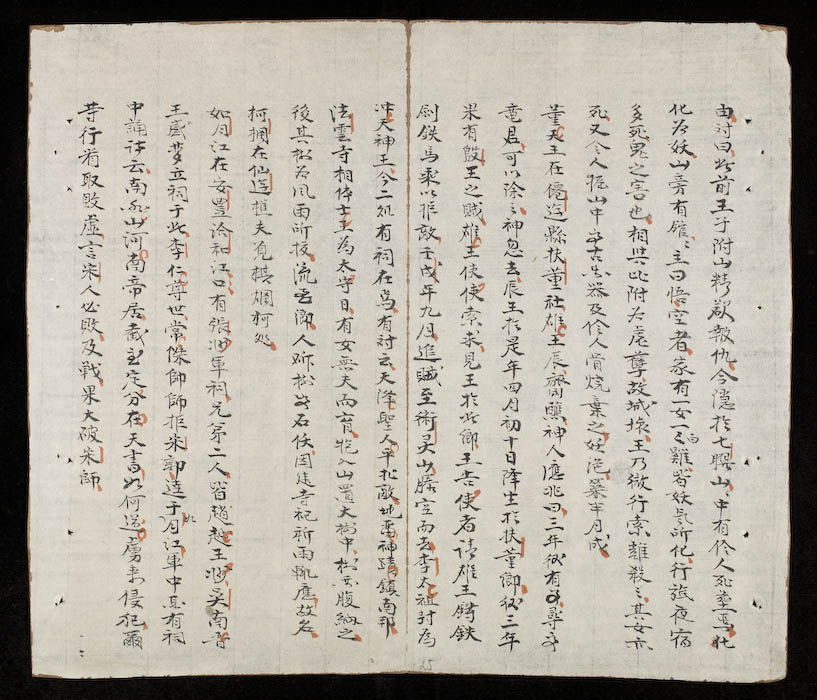 由対曰此前王子附山精欲報仇今隱於七耀山、中有伶人死葬焉化
化为妖山旁有館、主曰悟空者家有一女一白雞皆妖氣所化行旅夜宿
多死鬼之害也相與附为虐孽故城壞王乃微行索雞殺之其女亦
死又令人掘山中得古器及伶人骨燒棄之妖絶築半月成
董天王在僊遊縣扶董社雄王辰神人應兆曰三年後有
竜君可以除之神忽去辰王於是年四月初十日降生於扶董鄉後三年
果有殷王之賊雄王使使索求見王於此鄉王告使者請雄王鑄鉄
劍鉄馬乘以拒敵壬戌年九月進賊至術灵山騰空而去李太祖封为
冲天神王今二処有祠在焉有対云天降聖人平北敵地畱神蹟鎮南邦
法雲寺相傳士王为太守日有女無夫而育抱入山置大樹中、腹納之
後其松为風雨所拔流至鄉人斫松石佚因建寺祀祈雨輒應故名
柯爛在仙遊樵夫覓棋爛柯処
如月江在安豊洽和江口有張將軍祠兄弟二人皆趙越王將吳南晋
王感夢立祠于此李仁尊世常傑帥師拒宋郭逵于此月江軍中息有祠
中誦詩云南國山河南帝居截然定分在天書如何逆虜來侵犯爾
等行看取敗虛言宋人必敗及戰果大破宋師
25